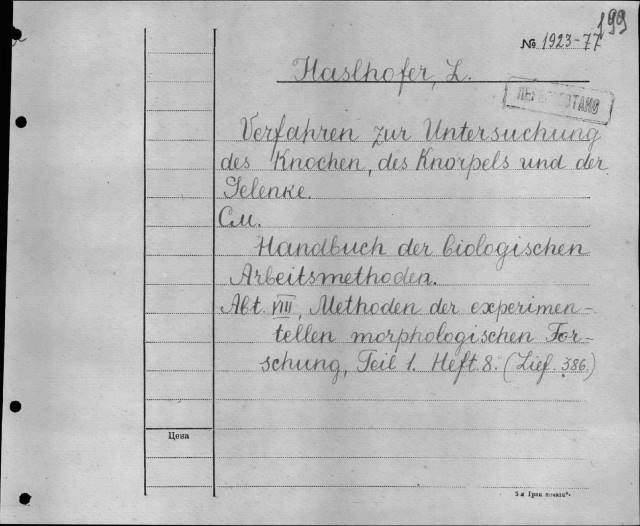 199
№ 1923-77
Haslhofer, L.
ПЕРЕРАБОТАНО
Verfahren zur Untersuchung
des Knochen, des Knorpels und der
Gelenke.
См.
Handbuch der biologischen
Arbeitsmethoden.
Abt. VIII, Methoden der experimen-
tellen morphologischen For-
schung, Teil 1. Heft 8. (Lief. 386.)
Цена